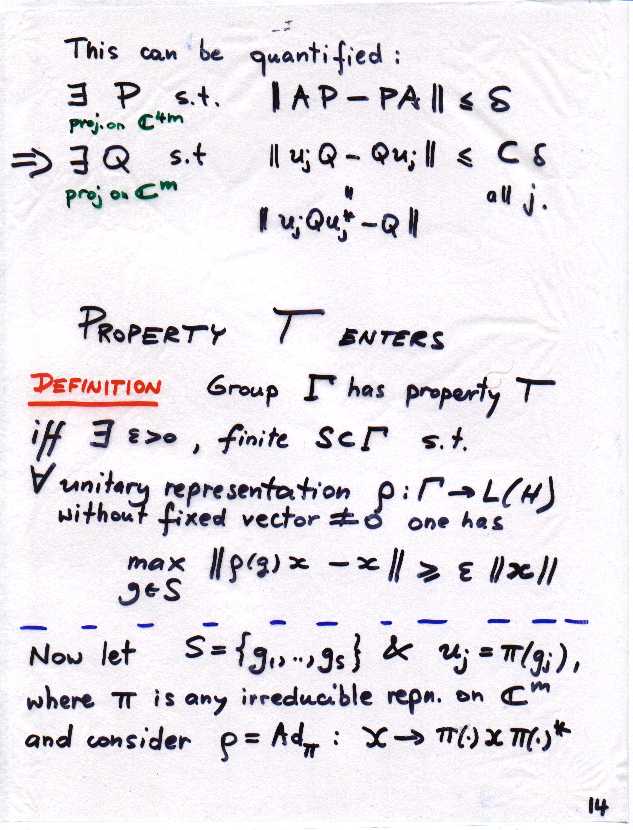 This can be quantified :
∃ P s.t. ‖AP − PA‖ ≤ δ
proj. on ℂ^4m
⇒ ∃ Q s.t ‖u_j Q − Q u_j‖ ≤ C δ
proj on ℂ^m " all j.
‖u_j Q u_j^* − Q‖
PROPERTY T ENTERS
DEFINITION Group Γ has property T
iff ∃ ε>0 , finite S⊂Γ s.t.
∀ unitary representation ρ : Γ → L(H)
without fixed vector ≠ 0 one has
max ‖ρ(g)x − x‖ ≥ ε ‖x‖
g∈S
Now let S = {g_1,..,g_s} & u_j = π(g_j),
where π is any irreducible repn. on ℂ^m
and consider ρ = Ad_π : x → π(·) x π(·)^*
14